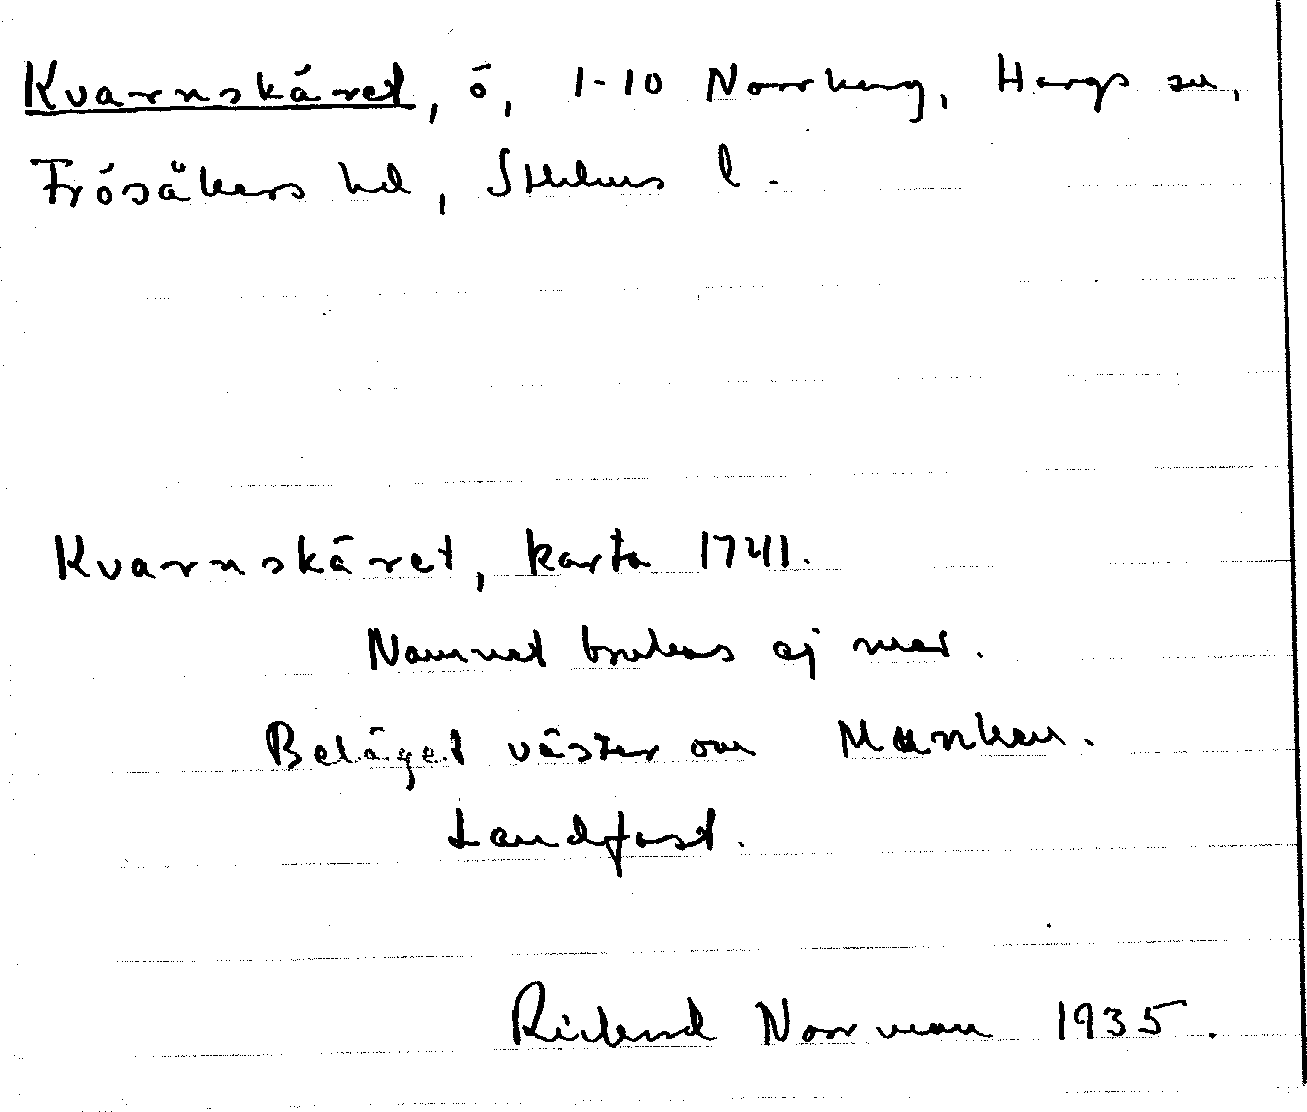 Kvarnskäret, ö, 1-10 Norrskog, Hargs sn,
Frösåkers hd, Sthlms l.
Kvarnskäret, karta 1741.
Namnet brukas ej mer.
Beläget väster om Manken.
Landfast.
Richard Norrman 1935.